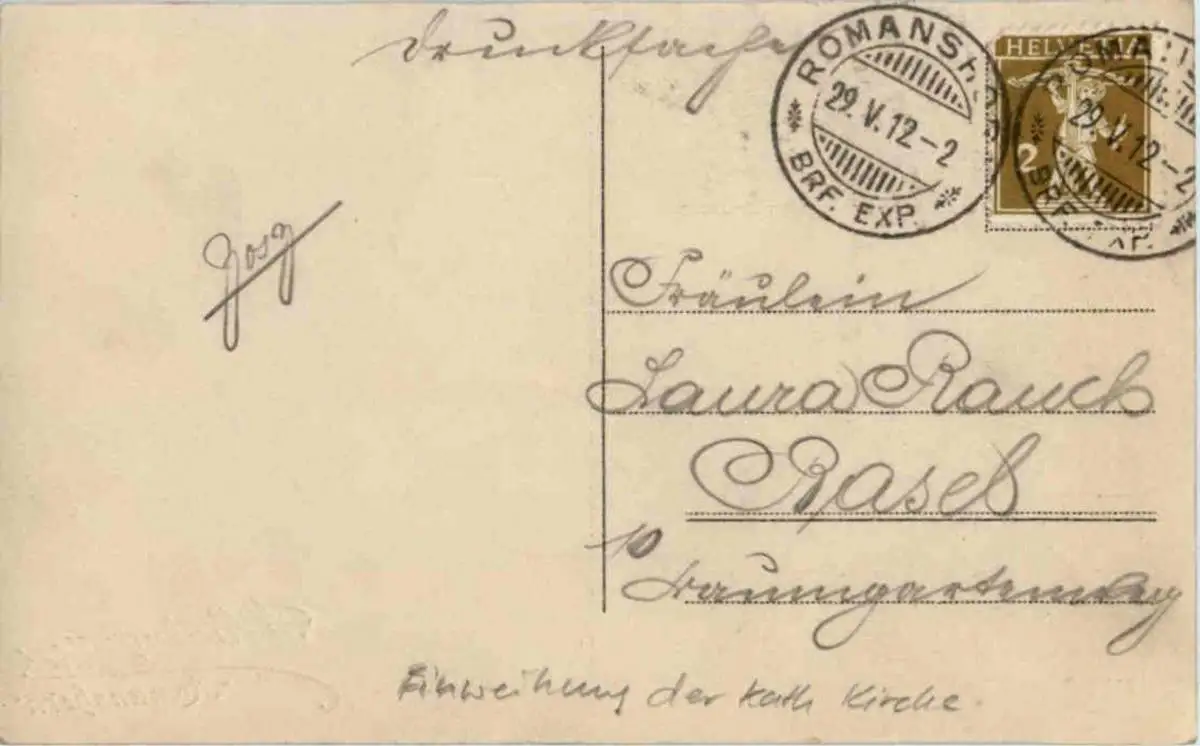 Drucksache
ROMANSHORN
29.V.12-2
BRF. EXP.
HELVETIA
2
ROMANSHORN
29.V.12-2
BRF. EXP.
Josy
Fräulein
Laura Rauch
Basel
10
Baumgartenweg
Einweihung der kath Kirche.